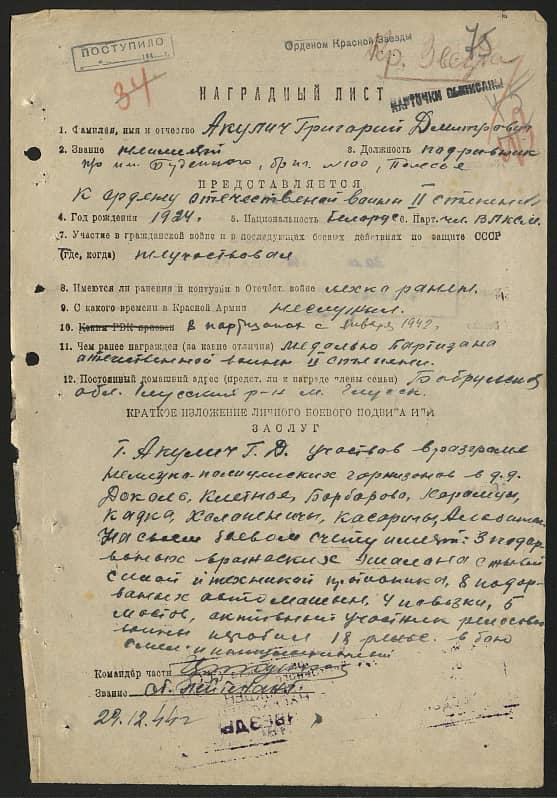 ПОСТУПИЛО
Орденом Красной Звезды
75
Кр. Звезда
34
КАРТОЧКИ ВЫПИСАНЫ
НАГРАДНЫЙ ЛИСТ
1. Фамилия, имя и отчество Акулич Григорий Дмитрович
2. Звание неимеят 3. Должность подрывник
п/о им. Буденного, бр. № 100, Полесье
ПРЕДСТАВЛЯЕТСЯ
К ордену отечественной воины II степени
4. Год рождения 1924 5. Национальность Белорус 6. Парт. чл. ВЛКСМ
7. Участие в гражданской войне и в последующих боевых действиях по защите СССР
(где, когда) неучаствовал
8. Имеются ли ранения и контузии в Отечест. войне лехка ранен.
9. С какого времени в Красной Армии неслужил.
10. Каким РВК призван В партизанах с января 1942г.
11. Чем ранее награжден (за какие отличия) медалью Партизана
отечественной воины II степени.
12. Постоянный домашний адрес (предст. ли к награде члены семьи) Бобруйская
обл. Глусский р-н м. Глусск.
КРАТКОЕ ИЗЛОЖЕНИЕ ЛИЧНОГО БОЕВОГО ПОДВИГА ИЛИ
ЗАСЛУГ
Т. Акулич Г. Д. участвов в разгроме
немецко-полицейских гарнизонов в д.д.
Доколь, Клетное, Барбарово,
Кадка, Холопеничи, Касаричи,
На своем боевом счету имеят: 3 подор-
ваных вражеских эшалона с живой
силой и техникой противника, 8 подор-
ваных автомашын, 4 повозки, 5
мостов, активный участник рельсовой
воины 18 рельс. в бою
Командир части
Звание
29.12.44г
ЗВЕЗДЫ